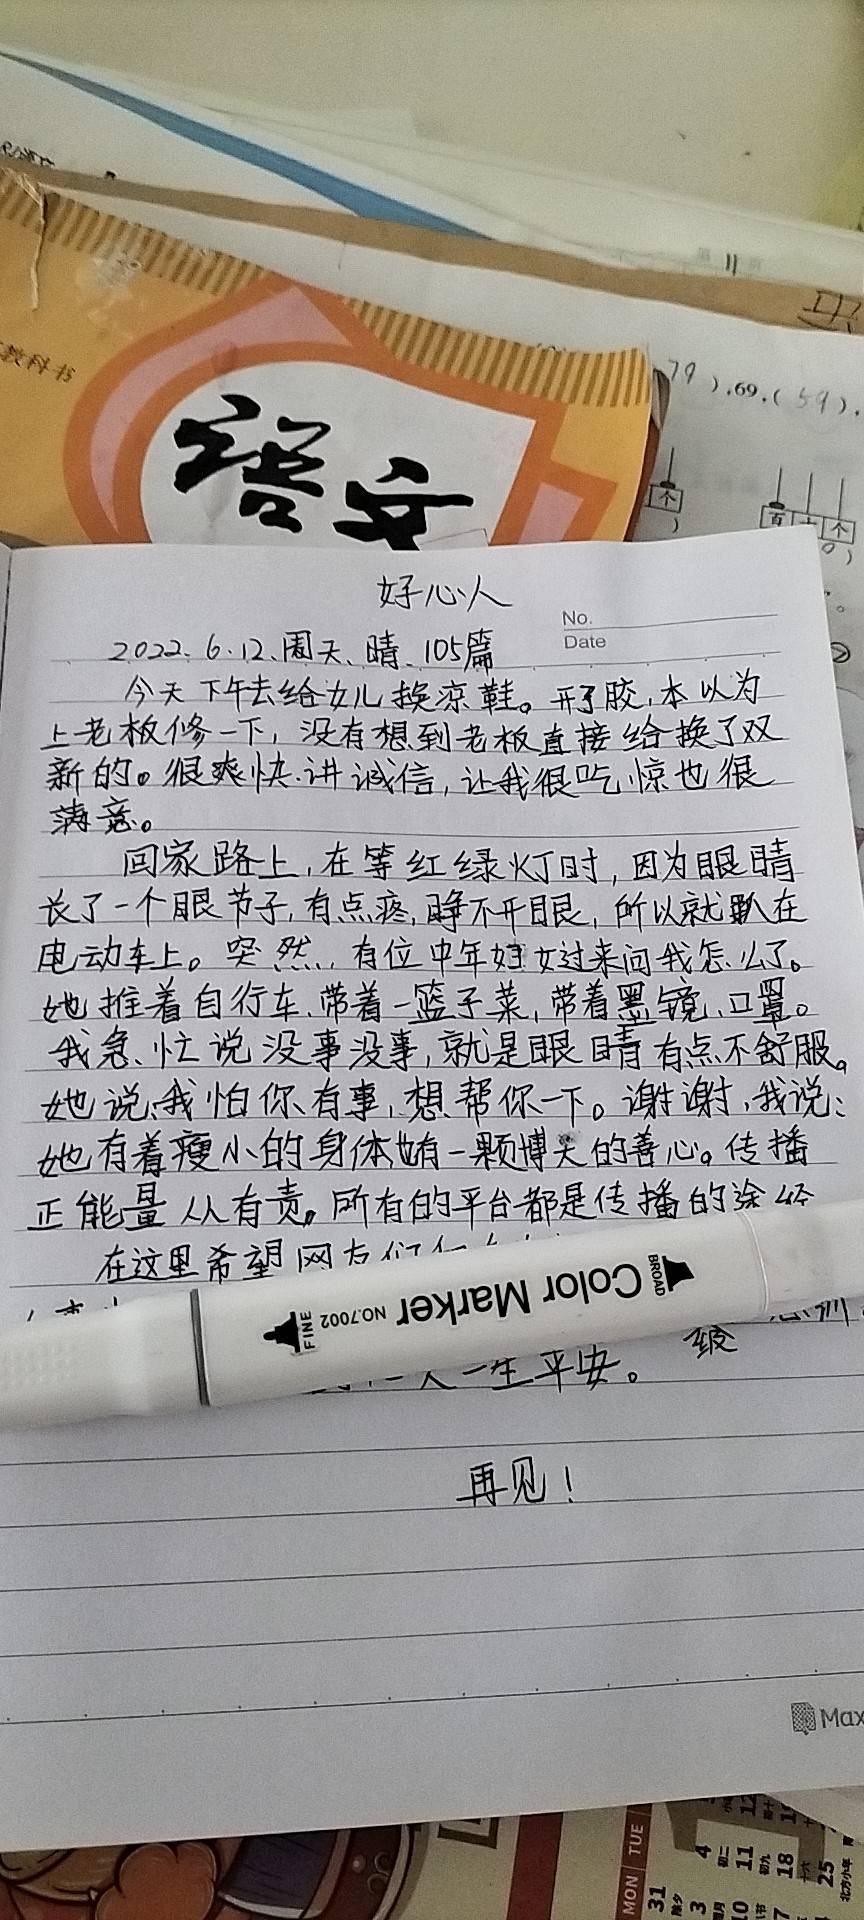 教科书
语文
79），69，（59），
个
百
个
好心人
No.
Date
2022.6.12、周天、晴、105篇
今天下午去给女儿换凉鞋。开了胶，本以为
上老板修一下，没有想到老板直接给换了双
新的。很爽快、讲诚信，让我很吃惊也很
满意。
回家路上，在等红绿灯时，因为眼睛
长了一个眼节子，有点疼，睁不开眼，所以就趴在
电动车上。突然，有位中年妇女过来问我怎么了。
她推着自行车、带着一篮子菜，带着墨镜、口罩。
我急忙说没事没事，就是眼睛有点不舒服。
她说、我怕你有事，想帮你一下。谢谢，我说：
她有着瘦小的身体、她有一颗博大的善心。传播
正能量人人有责。所有的平台都是传播的途经
在这里希望网友们
人一生平安。
再见！
Color Marker NO.7002
FINE
BROAD
Max
MON
TUE
31
除夕
3
4
初二
11
初九
18
十六
25
北方小年